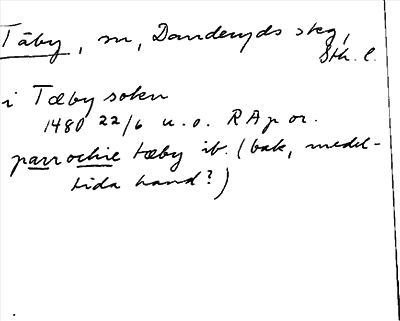 Täby, sn, Danderyds skg,
Sth. l.
i Tæby sokn
1480 22/6 u.o. RAp or.
parrochie tæby ib. (bak, medel-
tida hand?)